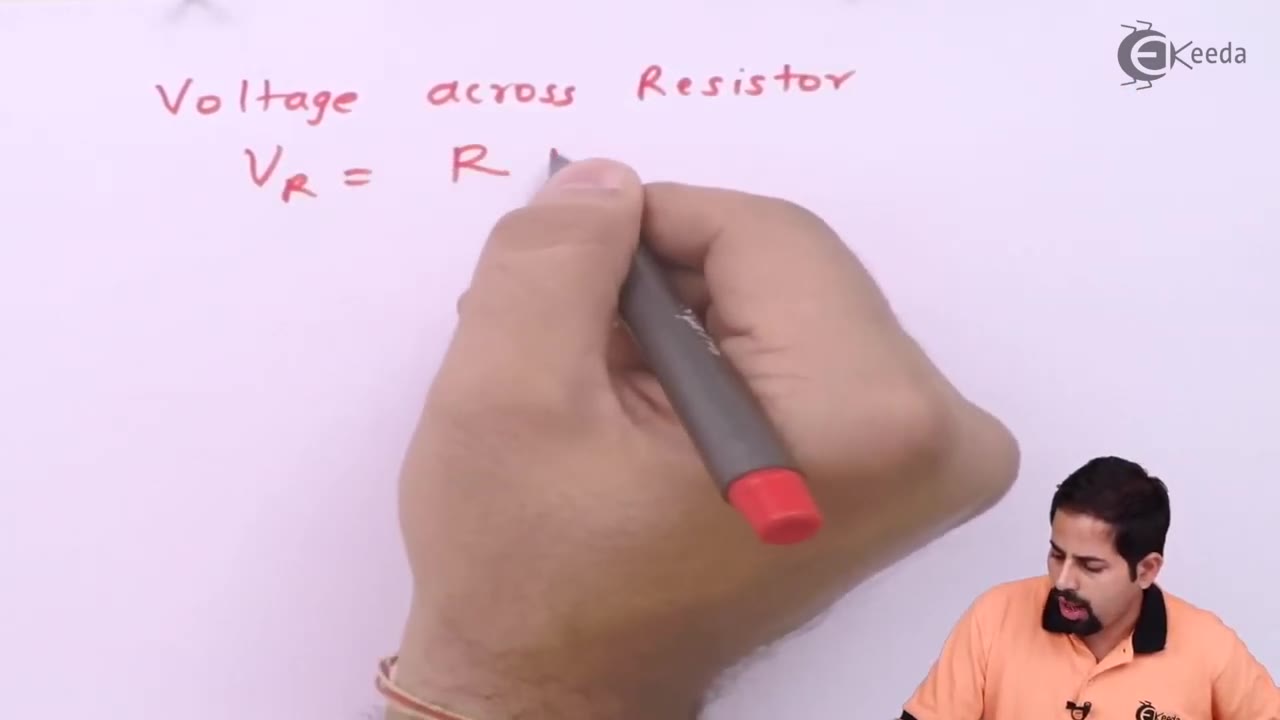 Voltage across Resistor
V_R = R
Keeda